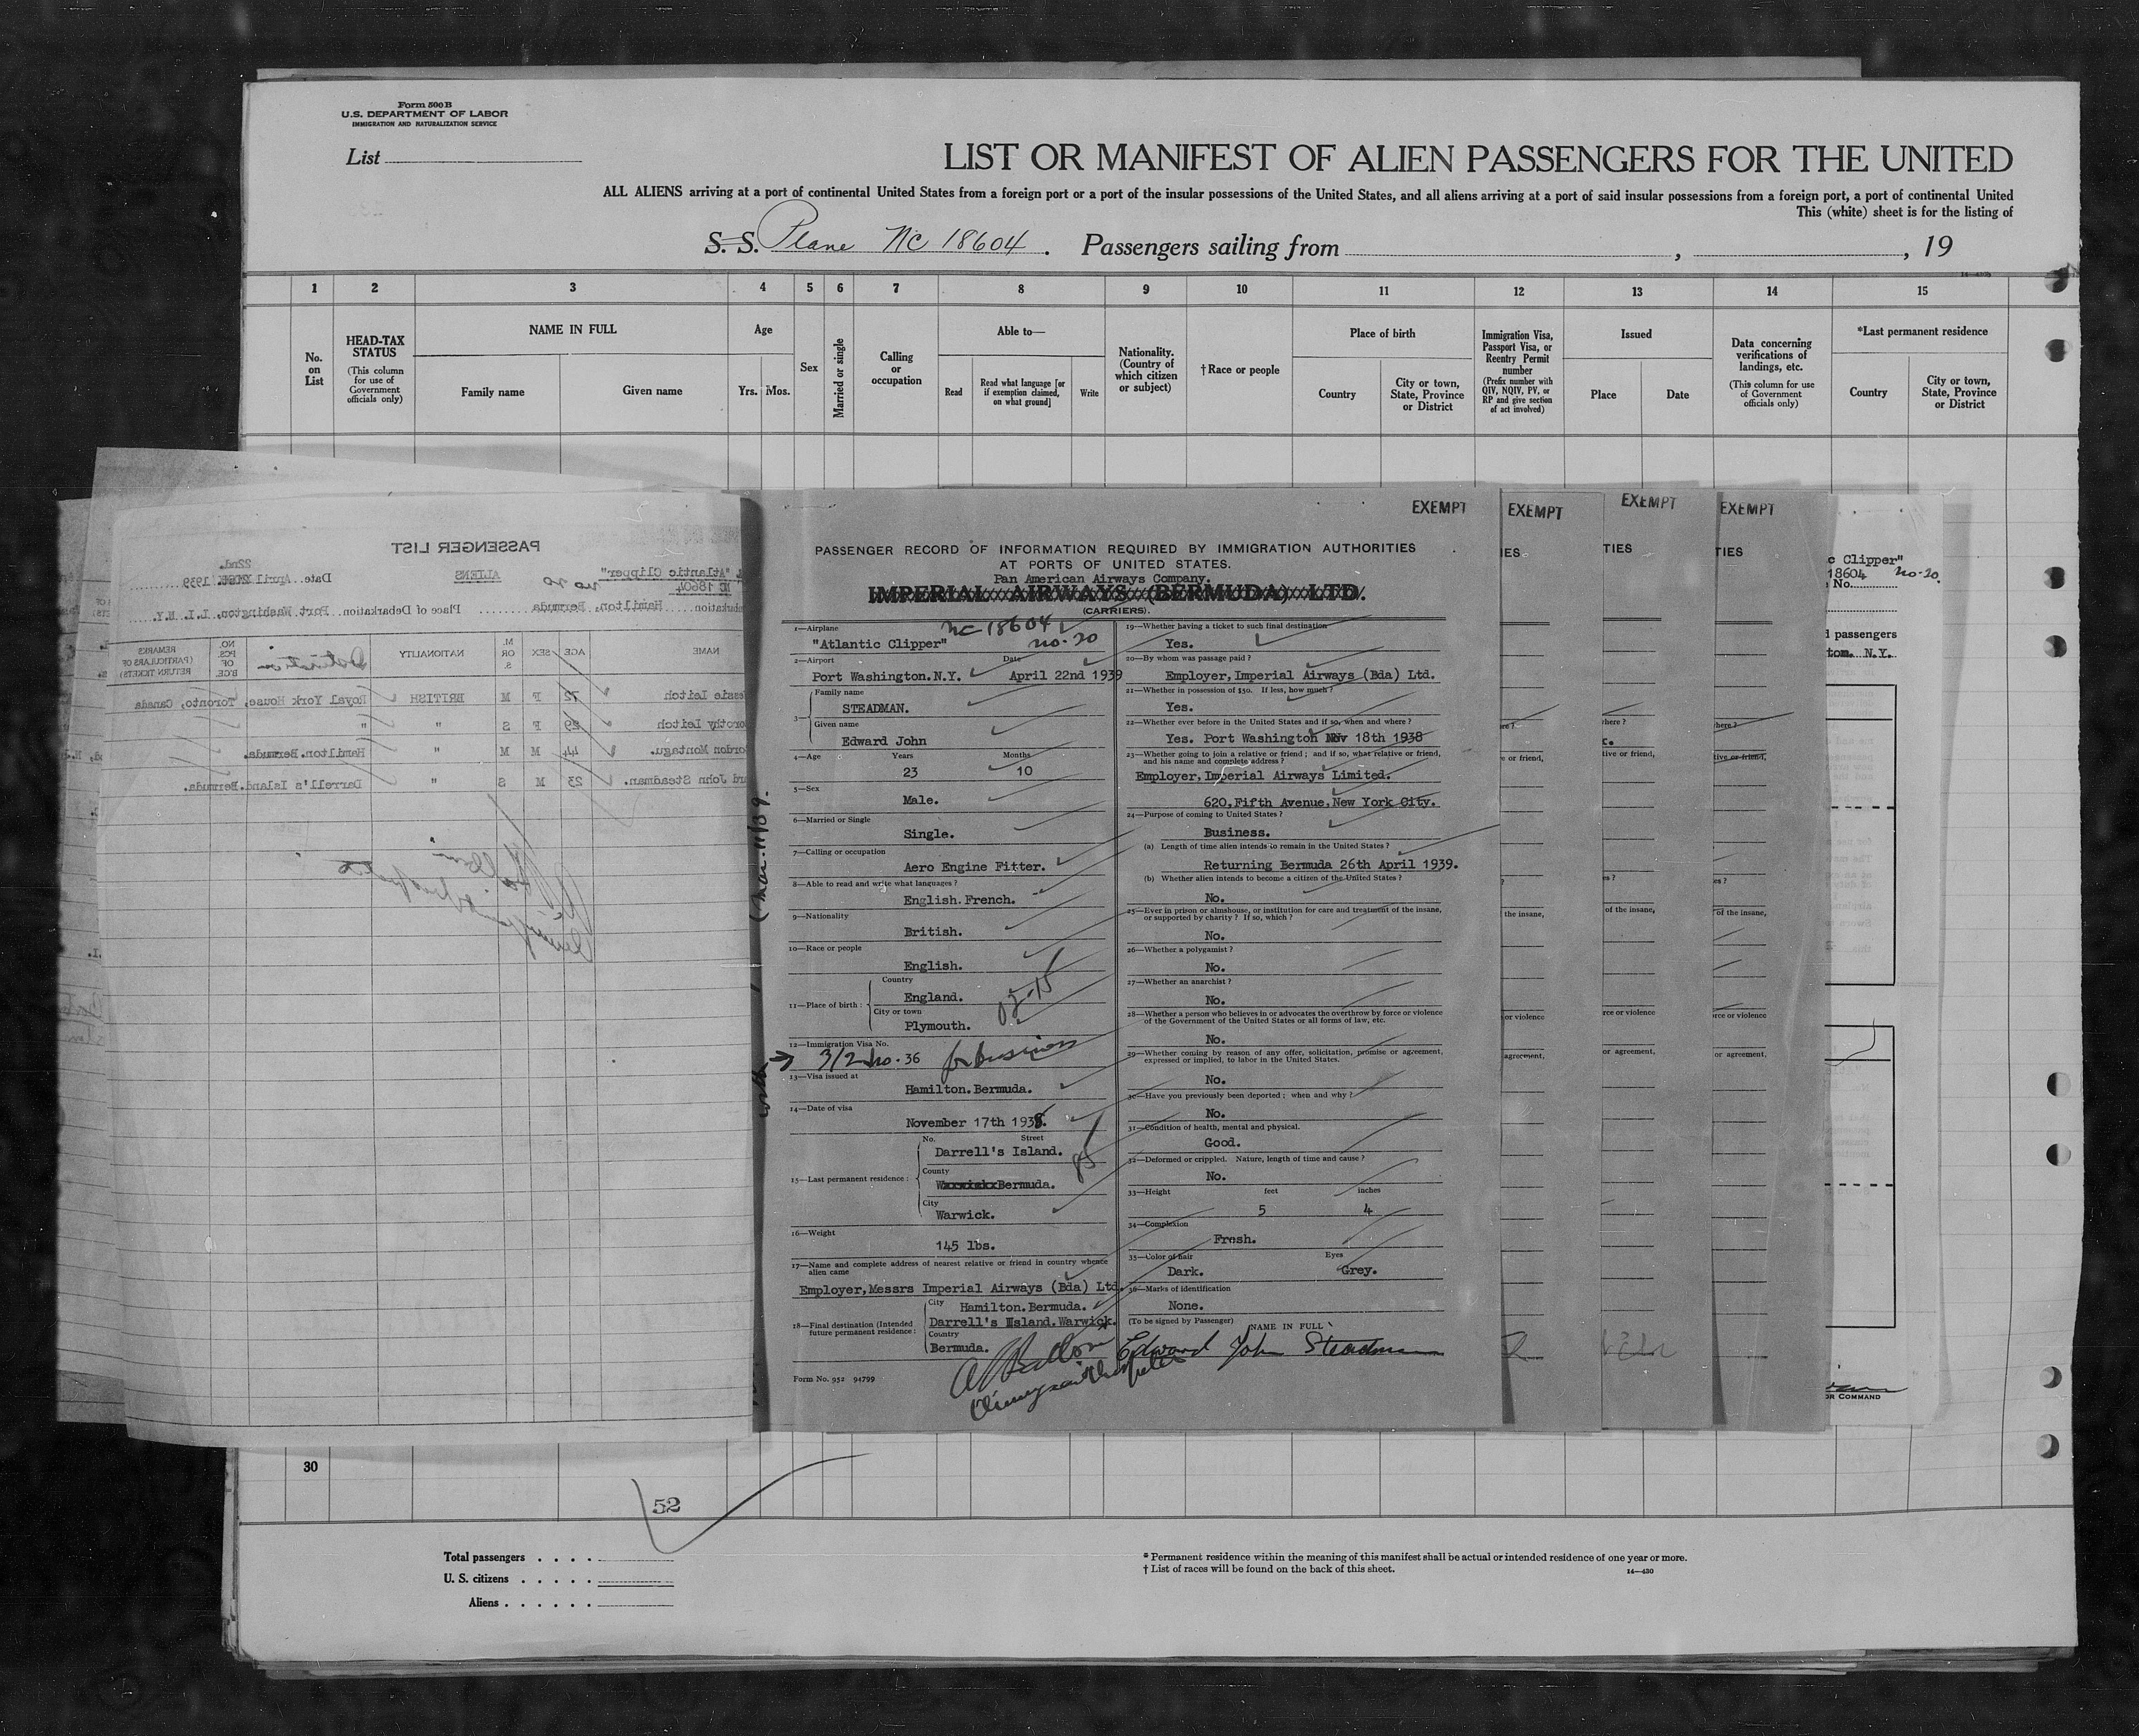 Form 500 B
U.S. DEPARTMENT OF LABOR
IMMIGRATION AND NATURALIZATION SERVICE
List
LIST OR MANIFEST OF ALIEN PASSENGERS FOR THE UNITED
ALL ALIENS arriving at a port of continental United States from a foreign port or a port of the insular possessions of the United States, and all aliens arriving at a port of said insular possessions from a foreign port, a port of continental United
This (white) sheet is for the listing of
S. S. Plane NC 18604. Passengers sailing from , , 19
1 2 3 4 5 6 7 8 9 10 11 12 13 14 15
No. on List
HEAD-TAX STATUS (This column for use of Government officials only)
NAME IN FULL
Family name Given name
Age
Yrs. Mos.
Sex
Married or single
Calling or occupation
Able to—
Read
Read what language [or if exemption claimed, on what ground]
Write
Nationality. (Country of which citizen or subject)
†Race or people
Place of birth
Country
City or town, State, Province or District
Immigration Visa, Passport Visa, or Reentry Permit number (Prefix number with QIV, NQIV, PV, or RP and give section of act involved)
Issued
Place Date
Data concerning verifications of landings, etc. (This column for use of Government officials only)
*Last permanent residence
Country
City or town, State, Province or District
PASSENGER LIST
ALIENS
"Atlantic Clipper" no 20
18604
Date April 22nd. 1939
Hamilton, Bermuda Place of Debarkation. Port Washington, L.I. N.Y.
NAME AGE SEX M. OR S. NATIONALITY Destination NO. PCS. OF B'G'E. REMARKS (PARTICULARS OF RETURN TICKETS)
essie Leitch 72 F M BRITISH Royal York House, Toronto, Canada
orothy Leitch 29 F S " " "
ordon Montagu. 44 M M " Hamilton.Bermuda.
ard John Steadman. 23 M S " Darrell's Island.Bermuda.
EXEMPT
EXEMPT
EXEMPT
EXEMPT
PASSENGER RECORD OF INFORMATION REQUIRED BY IMMIGRATION AUTHORITIES
AT PORTS OF UNITED STATES.
Pan American Airways Company.
IMPERIAL AIRWAYS (BERMUDA) LTD.
(CARRIERS).
1—Airplane NC 18604
"Atlantic Clipper" no. 20
2—Airport Date
Port Washington.N.Y. April 22nd 1939
3— Family name
STEADMAN.
Given name
Edward John
4—Age Years Months
23 10
5—Sex
Male.
6—Married or Single
Single.
7—Calling or occupation
Aero Engine Fitter.
8—Able to read and write what languages ?
English.French.
9—Nationality
British.
10—Race or people
English.
11—Place of birth : Country
England.
City or town
Plymouth.
12—Immigration Visa No.
3/2 No. 36 for business
13—Visa issued at
Hamilton.Bermuda.
14—Date of visa
November 17th 1938.
15—Last permanent residence : No. Street
Darrell's Island.
County
Bermuda.
City
Warwick.
16—Weight
145 lbs.
17—Name and complete address of nearest relative or friend in country whence alien came
Employer,Messrs Imperial Airways (Bda) Ltd.
18—Final destination (Intended future permanent residence :
City
Hamilton.Bermuda.
Darrell's Island.Warwick.
Country
Bermuda.
Form No. 952 94799
19—Whether having a ticket to such final destination
Yes.
20—By whom was passage paid ?
Employer,Imperial Airways (Bda) Ltd.
21—Whether in possession of $50. If less, how much ?
Yes.
22—Whether ever before in the United States and if so, when and where ?
Yes. Port Washington Nov 18th 1938
23—Whether going to join a relative or friend ; and if so, what relative or friend, and his name and complete address ?
Employer,Imperial Airways Limited.
620,Fifth Avenue.New York City.
24—Purpose of coming to United States ?
Business.
(a) Length of time alien intends to remain in the United States ?
Returning Bermuda 26th April 1939.
(b) Whether alien intends to become a citizen of the United States ?
No.
25—Ever in prison or almshouse, or institution for care and treatment of the insane, or supported by charity ? If so, which ?
No.
26—Whether a polygamist ?
No.
27—Whether an anarchist ?
No.
28—Whether a person who believes in or advocates the overthrow by force or violence of the Government of the United States or all forms of law, etc.
No.
29—Whether coming by reason of any offer, solicitation, promise or agreement, expressed or implied, to labor in the United States.
No.
30—Have you previously been deported ; when and why ?
No.
31—Condition of health, mental and physical.
Good.
32—Deformed or crippled. Nature, length of time and cause ?
No.
33—Height feet inches
5 4
34—Complexion
Fresh.
35—Color of hair Eyes
Dark. Grey.
36—Marks of identification
None.
(To be signed by Passenger) NAME IN FULL
Edward John Steadman
c Clipper"
18604 no-20.
No.
passengers
ton. N.Y.
OR COMMAND
30
52
Total passengers
U. S. citizens
Aliens
* Permanent residence within the meaning of this manifest shall be actual or intended residence of one year or more.
† List of races will be found on the back of this sheet.
14—430